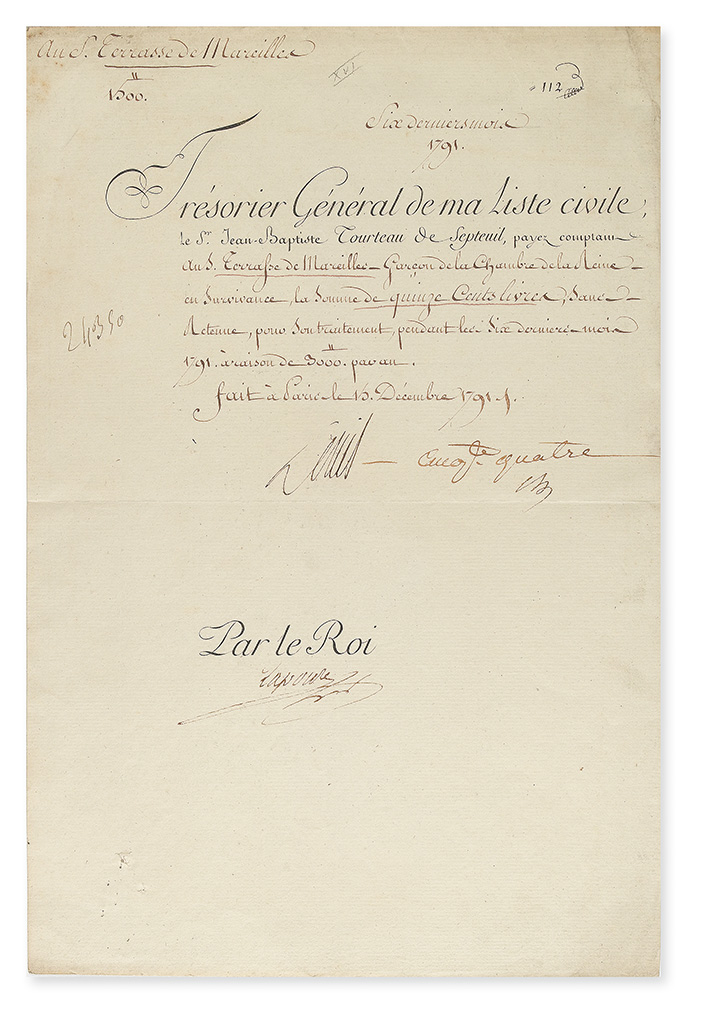 Au S. Terrasse de Mareilles
1500.ᴵᴵ
XVI
112
Six derniers mois
1791.
Trésorier Général de ma Liste civile,
le Sr. Jean-Baptiste Tourteau de Septeuil, payez comptant
au S. Terrasse de Mareilles Garçon de la Chambre de la Reine
en Survivance, la Somme de quinze Cents livres, Sans
Retenue, pour Son traitement, pendant les Six derniers mois
1791. à raison de 3000.ᴵᴵ par an.
fait à Paris le 15. Décembre 1791.
24350
Louis
quatre
Par le Roi
Laporte